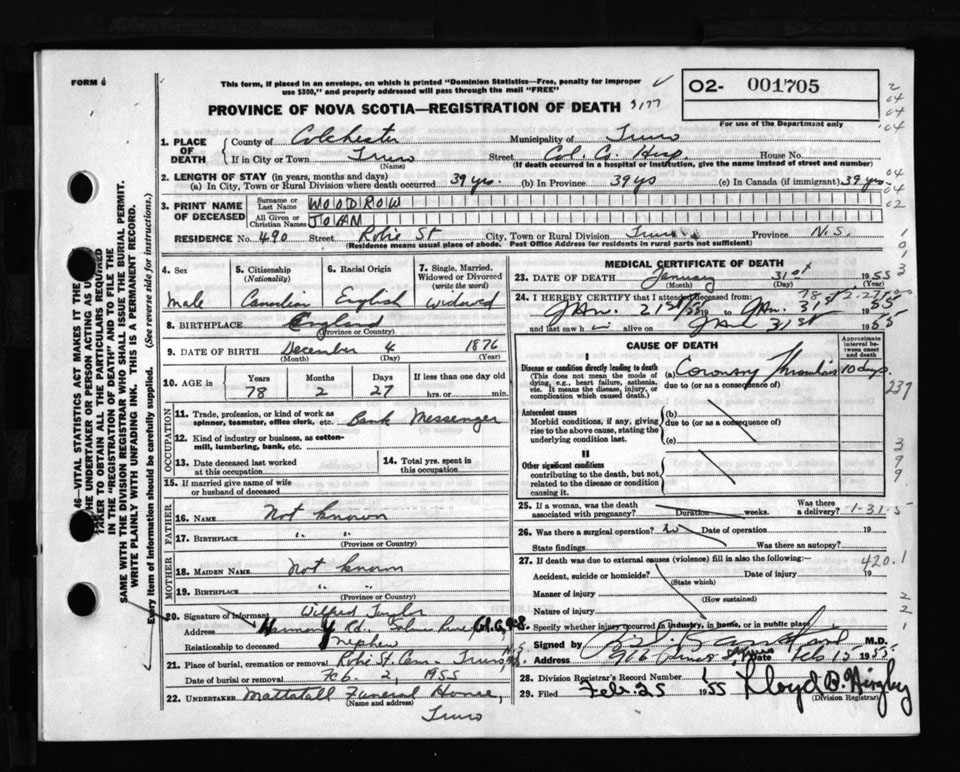 FORM
This form, if placed in an envelope, on which is printed "Dominion Statistics—Free, penalty for improper
use $300," and properly addressed will pass through the mail "FREE"
O2- 001705
For use of the Department only
PROVINCE OF NOVA SCOTIA—REGISTRATION OF DEATH
1. PLACE OF DEATH
County of Colchester Municipality of Truro
If in City or Town Truro Street Col. Co. Hosp. House No.
(Name) (If death occurred in hospital or institution, give the name instead of street and number)
2. LENGTH OF STAY (in years, months and days)
(a) In City, Town or Rural Division where death occurred 39 yrs. (b) In Province 39 yrs (c) In Canada (if immigrant) 39 yrs.
3. PRINT NAME OF DECEASED
Surname or Last Name WOODROW
All Given or Christian Names
RESIDENCE No. 490 Street Robie St City, Town or Rural Division Truro Province N.S.
(Residence means usual place of abode. Post Office Address for residents in rural parts not sufficient)
4. Sex
Male
5. Citizenship (Nationality)
Canadian
6. Racial Origin
English
7. Single, Married, Widowed or Divorced (write the word)
Widowed
8. BIRTHPLACE England
(Province or Country)
9. DATE OF BIRTH December 4 1876
(Month) (Day) (Year)
10. AGE in Years Months Days If less than one day old
78 2 27 hrs. or min.
OCCUPATION
11. Trade, profession, or kind of work as spinner, teamster, office clerk, etc. Bank Messenger
12. Kind of industry or business, as cotton-mill, lumbering, bank, etc.
13. Date deceased last worked at this occupation
14. Total yrs. spent in this occupation
15. If married give name of wife or husband of deceased
FATHER
16. NAME Not known
17. BIRTHPLACE " "
(Province or Country)
MOTHER
18. MAIDEN NAME Not known
19. BIRTHPLACE " "
(Province or Country)
20. Signature of informant Wilfred Taylor
Address Harmony Rd.
Relationship to deceased nephew
21. Place of burial, cremation or removal Robie St. Cem. Truro
Date of burial or removal Feb. 2, 1955
22. UNDERTAKER Mattatall Funeral Home,
(Name and address)
Truro
MEDICAL CERTIFICATE OF DEATH
23. DATE OF DEATH January 31st 1955
(Month) (Day)
24. I HEREBY CERTIFY that I attended deceased from:
Jan. 21st 19 to Jan. 31st 1955
and last saw h im alive on Jan 31st 1955
CAUSE OF DEATH
Approximate interval between onset and death
I
Disease or condition directly leading to death
(This does not mean the mode of dying, e.g., heart failure, asthenia, etc. It means the disease, injury, or complication which caused death.)
(a) Coronary Thrombosis 10 days
due to (or as a consequence of)
Antecedent causes
Morbid conditions, if any, giving rise to the above cause, stating the underlying condition last.
(b)
due to (or as a consequence of)
(c)
II
Other significant conditions
contributing to the death, but not related to the disease or condition causing it.
25. If a woman, was the death associated with pregnancy? Duration weeks. Was there a delivery?
26. Was there a surgical operation? No Date of operation 19
State findings Was there an autopsy?
27. If death was due to external causes (violence) fill in also the following:
Accident, suicide or homicide? Date of injury 19
(State which)
Manner of injury
(How sustained)
Nature of injury
Specify whether injury occurred in industry, in home, or in public place
Signed by M.D.
Address Date Feb 15 1955
28. Division Registrar's Record Number
29. Filed Feb. 25 1955
(Division Registrar)
420.1
46—VITAL STATISTICS ACT MAKES IT THE
THE UNDERTAKER OR PERSON ACTING AS UN
TAKER TO OBTAIN ALL THE PARTICULARS REQUIRED
IN THE "REGISTRATION OF DEATH" AND TO FILE THE
SAME WITH THE DIVISION REGISTRAR WHO SHALL ISSUE THE BURIAL PERMIT.
WRITE PLAINLY WITH UNFADING INK. THIS IS A PERMANENT RECORD.
Every item of Information should be carefully supplied. (See reverse side for instructions.)